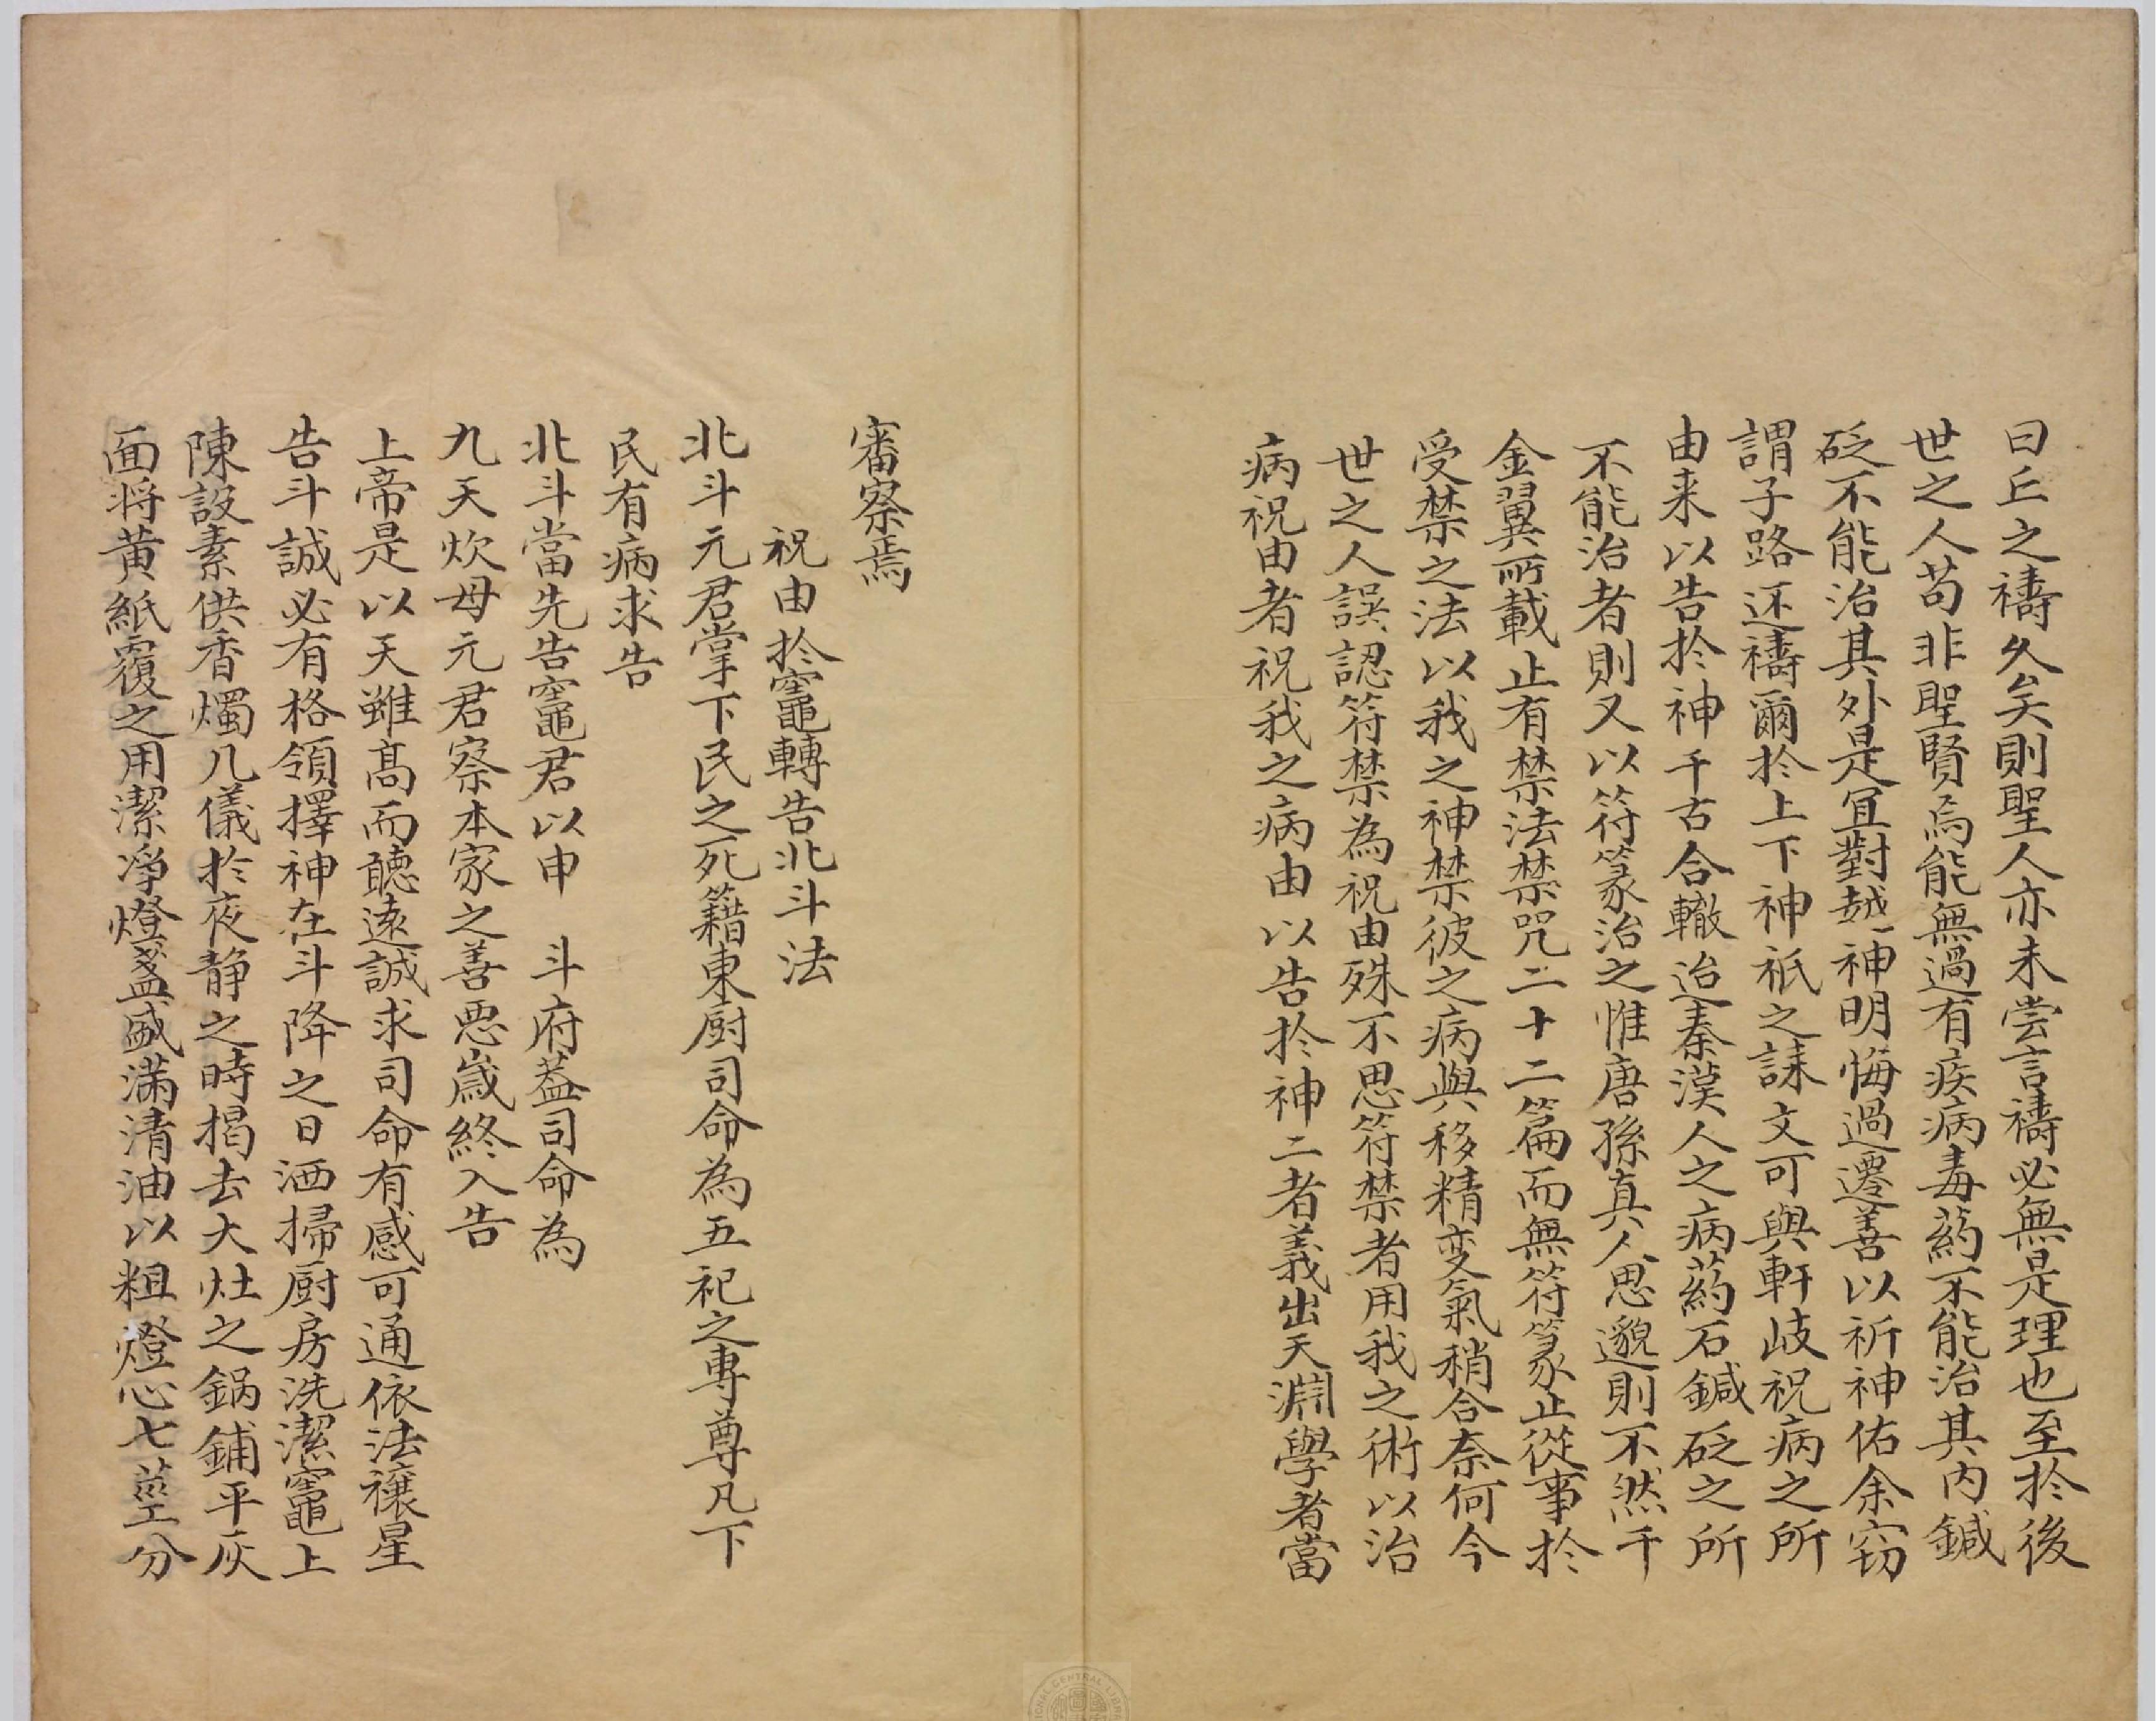 曰丘之禱久矣則聖人亦未尝言禱必無是理也至於後
世之人苟非聖賢烏能無過有疾病毒葯不能治其内鍼
砭不能治其外是宜對越神明悔過遷善以祈神佑余窃
謂子路还禱爾於上下神祇之誄文可與軒岐祝病之所
由来以告於神千古合轍迨秦漢人之病葯石鍼砭之所
不能治者則又以符篆治之惟唐孫真人思邈則不然千
金翼所載止有禁法禁咒二十二篇而無符篆止從事於
受禁之法以我之神禁彼之病與移精变氣稍合奈何今
世之人誤認符禁為祝由殊不思符禁者用我之術以治
病祝由者祝我之病由以告於神二者義出天淵學者當
審察焉
祝由於竈轉告北斗法
北斗元君掌下民之死籍東廚司命為五祀之專尊凡下
民有病求告
北斗當先告竈君以申 斗府葢司命為
九天炊母元君察本家之善悪歲終入告
上帝是以天雖髙而聽遠誠求司命有感可通依法禳星
告斗誠必有格領擇神在斗降之日洒掃厨房洗潔竈上
陳設素供香燭几儀於夜静之時揭去大灶之鍋鋪平灰
面将黄紙覆之用潔净燈盞盛滿清油以粗燈心七莖分